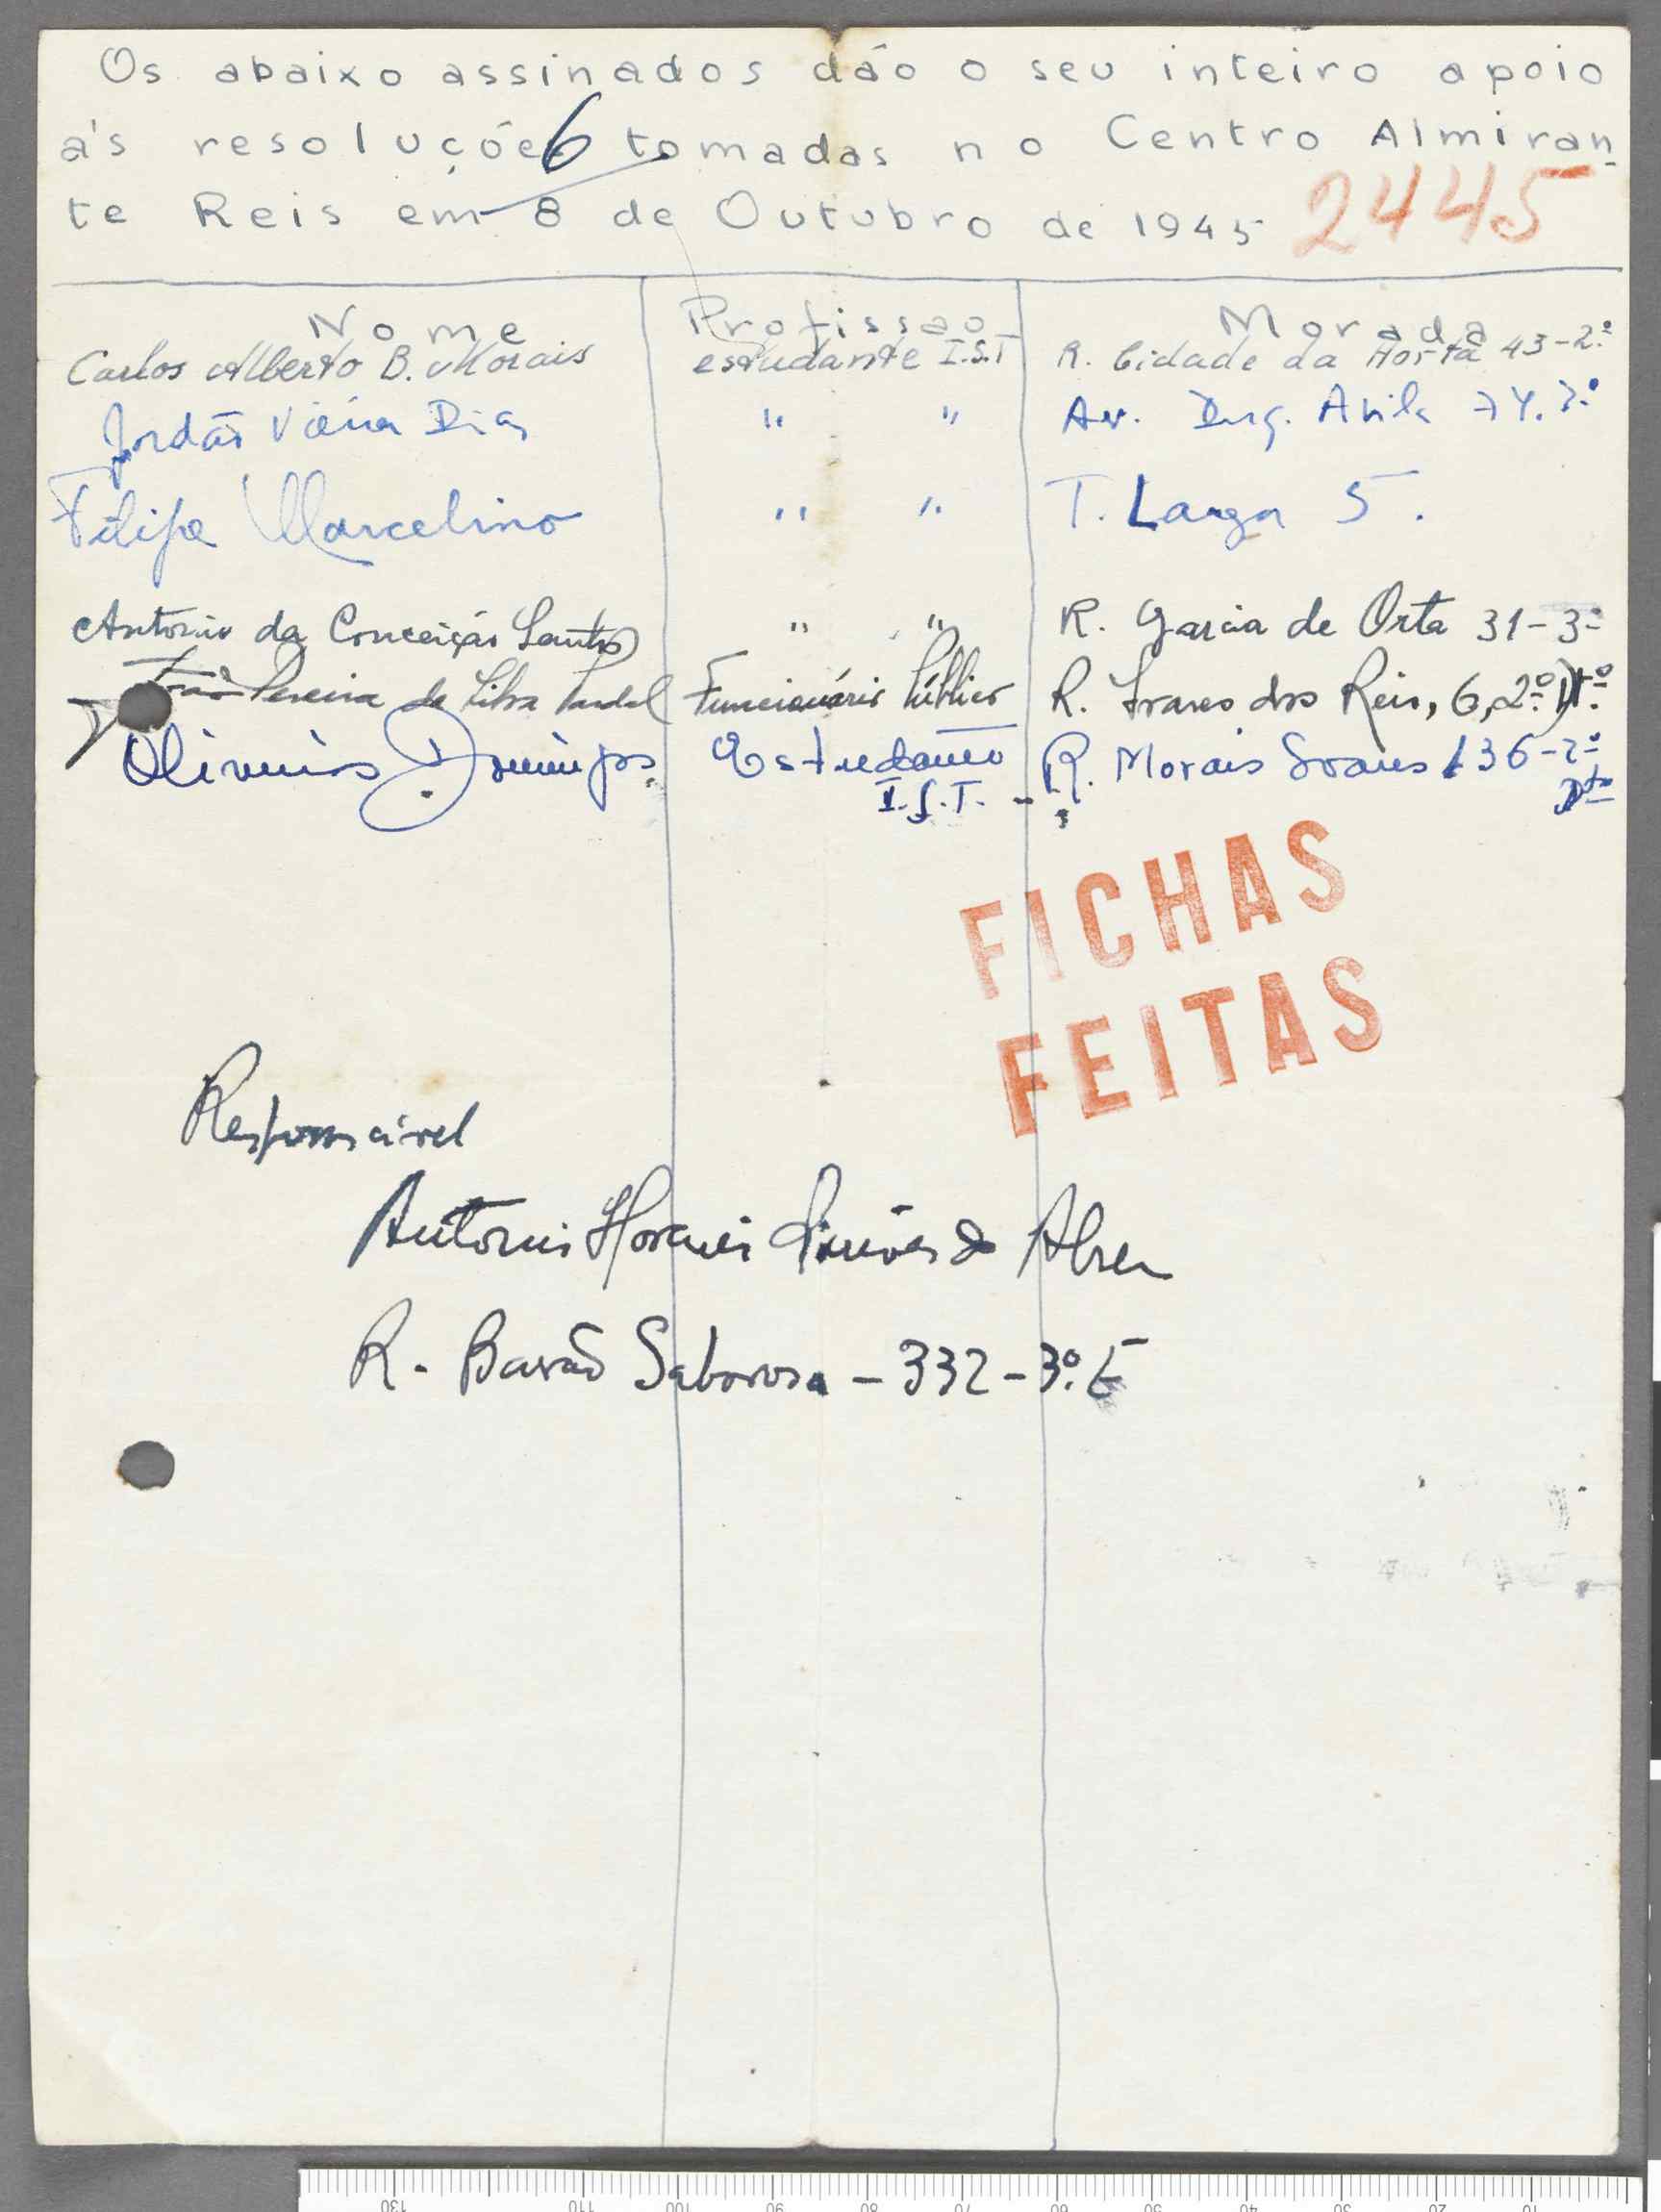 Os abaixo assinados dão o seu inteiro apoio
ás resoluções tomadas no Centro Almiran-
te Reis em 8 de Outubro de 1945
6
2445
Nome Profissão Morada
Carlos Alberto B. Morais estudante I.S.T R. Cidade da Horta 43-2º
Jordão Vieira Dias " " Av. Duq. Avila 74.3º
Filipe Marcelino " " T. Larga 5.
Antonio da Conceição Santos " " R. Garcia de Orta 31-3º
João Pereira da Silva Funcionário Público R. Soares dos Reis, 6, 2º Dtº
Olimpio Domingos Estudante R. Morais Soares 136-2º
I.S.T. - Dto
FICHAS
FEITAS
Responsável
Antonio Simões de Abreu
R. Barão Sabrosa - 332 - 3º. E